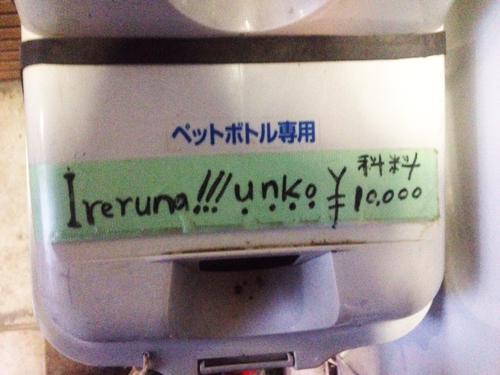 ペットボトル専用
Ireruna!!! unko ¥10,000
科料